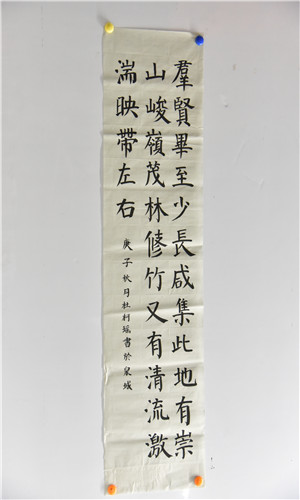 羣賢畢至少長咸集此地有崇
山峻嶺茂林修竹又有清流激
湍映帶左右
庚子秋月杜利瑶書於泉城